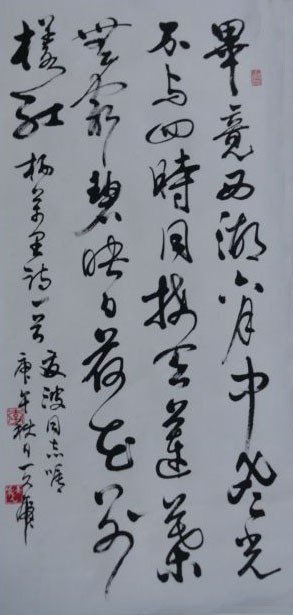 畢竟西湖六月中風光
不与四時同接天蓮葉
無窮碧映日荷花别
樣紅 杨萬里诗一首
波同志嘱
庚午秋日